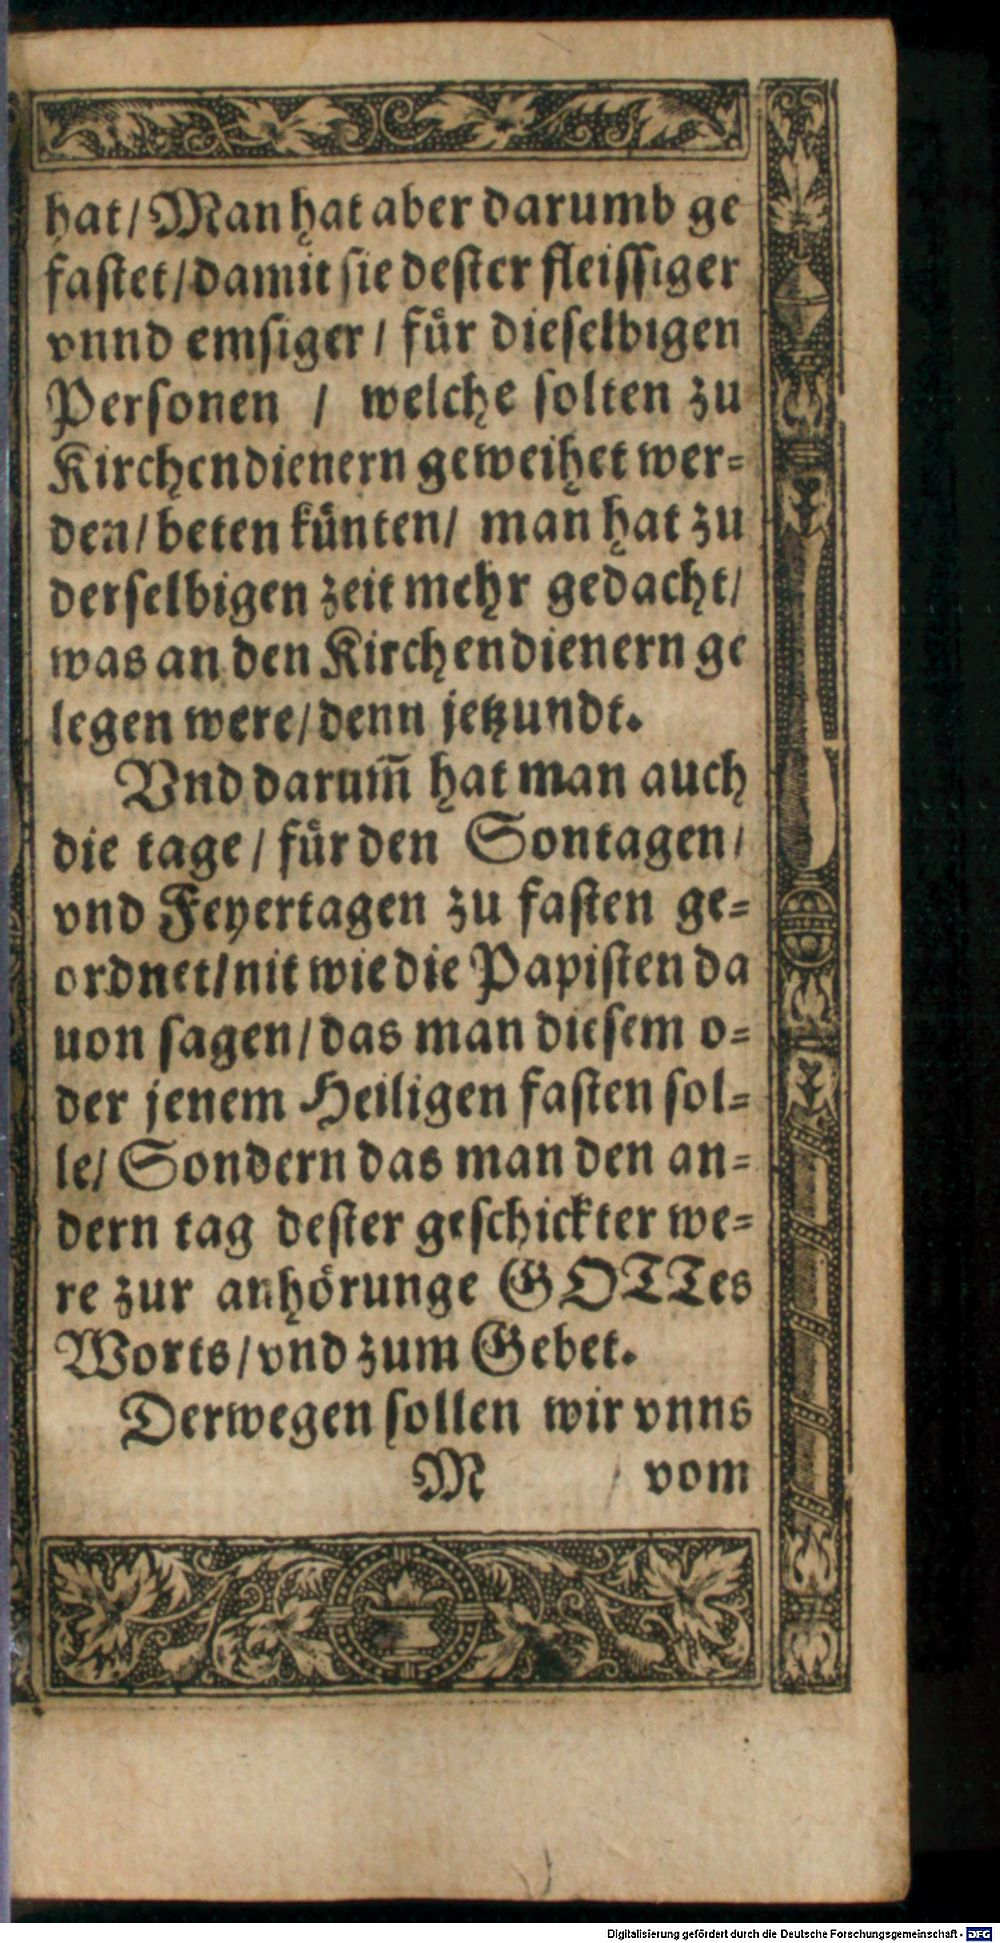 hat/ Man hat aber darumb ge
fastet/ damit sie dester fleissiger
vnnd emsiger/ für dieselbigen
Personen / welche solten zu
Kirchendienern geweihet wer=
den/ beten künten/ man hat zu
derselbigen zeit mehr gedacht/
was an den Kirchendienern ge
legen were/ denn jetzundt.
Vnd darum̃ hat man auch
die tage/ für den Sontagen/
vnd Feyertagen zu fasten ge=
ordnet/ nit wie die Papisten da
uon sagen/ das man diesem o=
der jenem Heiligen fasten sol=
le/ Sondern das man den an=
dern tag dester geschickter we=
re zur anhörunge GOTTes
Worts/ vnd zum Gebet.
Derwegen sollen wir vnns
M vom
Digitalisierung gefördert durch die Deutsche Forschungsgemeinschaft - DFG